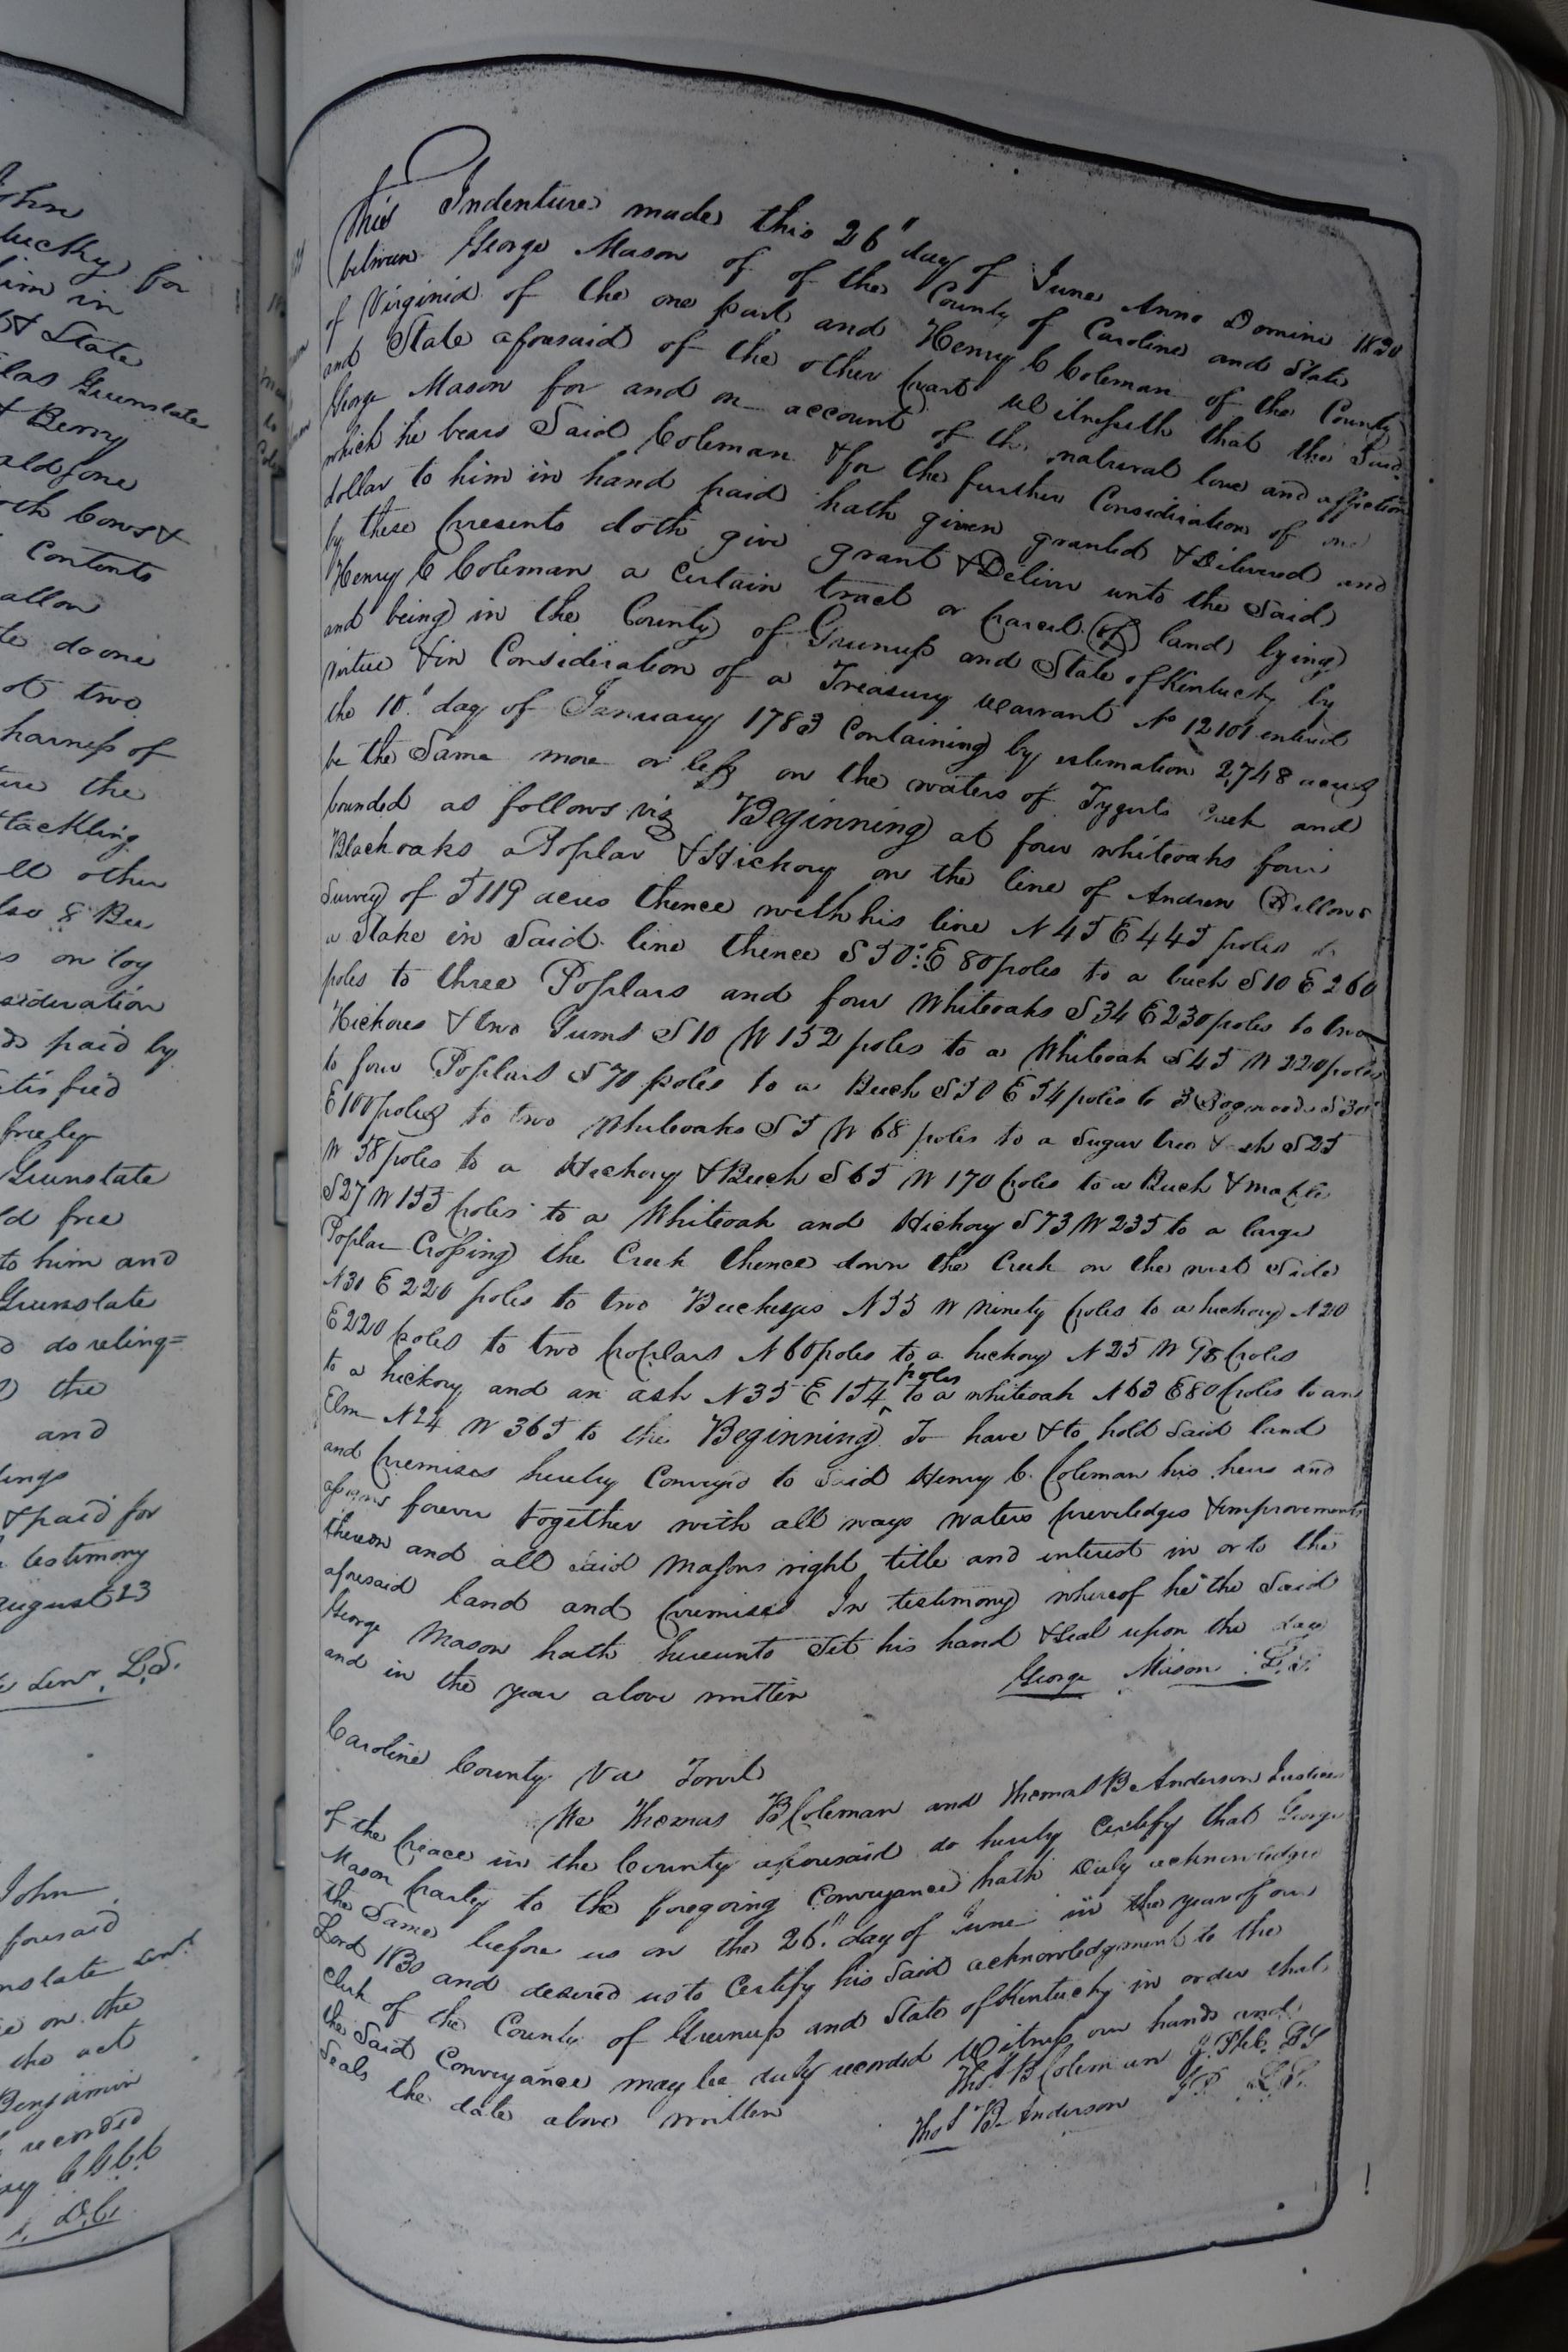 John
tucky for
him in
& State
las Grunslate
& Berry
ald fone
Cows &
Contents
allow
te doone
of two
harness of
ure the
tackling
all other
also 8 Bee
s on log
sideration
ds paid by
tisfied
freely
Grunslate
ld free
to him and
Grunslate
d do relinq=
the
and
lings
& paid for
testimony
august 23
Senr. L.S.
John
foresaid
nslate Senr
on the
the act
Benjamin
recorded
D.C.
This Indenture made this 26" day of June Anno Domini 1830
between George Mason of of the County of Caroline and State
of Virginia of the one part and Henry C Coleman of the County
and State aforesaid of the other part Witnesseth that the Said
George Mason for and on account of the natural love and affection
which he bears Said Coleman & for the further Consideration of one
dollar to him in hand paid hath given granted & Delivered and
by these presents doth give grant & Deliver unto the Said
Henry C Coleman a certain tract or parcel (of) land lying
and being in the County of Greenup and State of Kentucky by
virtue & in Consideration of a Treasury warrant No 12101 entered
the 10" day of January 1783 Containing by estimation 2748 acres
be the Same more or less on the waters of Tygerts Creek and
bounded as follows viz Beginning at four whiteoaks four
Blackoaks a Poplar & Hickory on the line of Andrew Dillons
Survey of 5119 acres thence with his line N 45 E 445 poles to
a Stake in Said line thence S 50: E 80 poles to a buch S 10 E 260
poles to three Poplars and four Whiteoaks S 34 E 230 poles to two
Hickores & two Gums S 10 W 152 poles to a Whiteoak S 45 W 220 poles
to four Poplars S 70 poles to a Buch S 50 E 54 poles to 3 Dogwoods S 30
E 100 poles to two Whiteoaks S 5 W 68 poles to a Sugar tree & ash S 25
W 58 poles to a Hickory & Buch S 65 W 170 poles to a Buch & maple
S 27 W 155 poles to a Whiteoak and Hickory S 73 W 235 to a large
Poplar Crossing the Creek thence down the Creek on the west Side
N 30 E 220 poles to two Buckeyes N 55 W Ninety poles to a hickory N 20
E 220 poles to two poplars N 60 poles to a hickory N 25 W 98 poles
to a hickory and an ash N 35 E 154 poles to a whiteoak N 63 E 80 poles to an
Elm N 24 W 365 to the Beginning To have & to hold Said land
and premises hereby Conveyed to Said Henry C. Coleman his heirs and
assigns forever together with all ways waters priviledges & improvements
thereon and all Said Masons right title and interest in or to the
aforesaid land and premises In testimony whereof he the Said
George Mason hath hereunto Set his hand & Seal upon the day
and in the year above written
George Mason L.S.
Caroline County Va Towit
We Thomas B Coleman and Thomas B. Anderson Justices
of the peace in the County aforesaid do hereby Certify that George
Mason party to the foregoing Conveyance hath Duly acknowledged
the Same before us on the 26" day of June in the year of our
Lord 1830 and desired us to Certify his Said acknowledgement to the
Clerk of the County of Greenup and State of Kentucky in order that
the Said Conveyance may be duly recorded Witness our hands and
Seals the date above written
Thos B Coleman
Thos B. Anderson J.P. L.S.